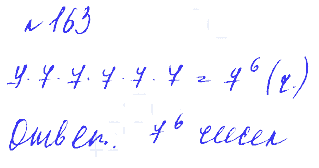 №163
7·7·7·7·7·7 = 7⁶ (ч.)
Ответ. 7⁶ чисел